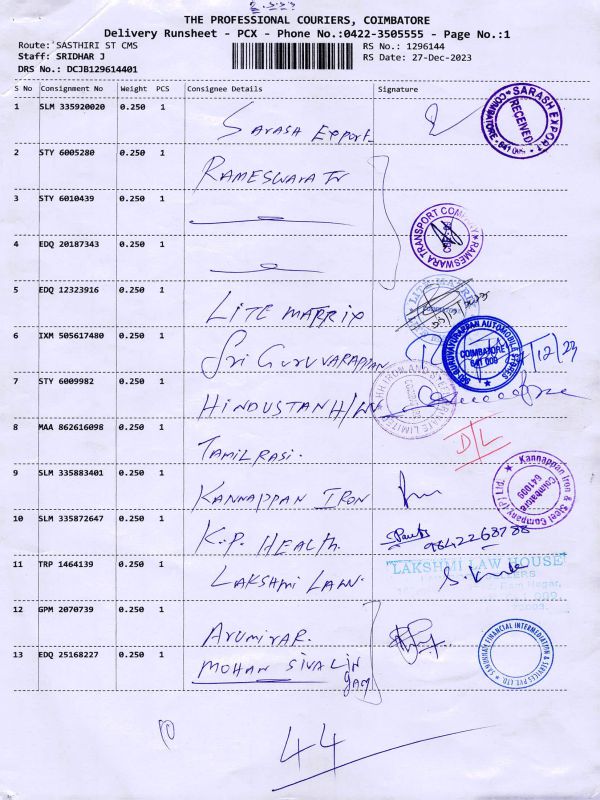 THE PROFESSIONAL COURIERS, COIMBATORE
Delivery Runsheet - PCX - Phone No.:0422-3505555 - Page No.:1
Route: SASTHIRI ST CMS
RS No.: 1296144
Staff: SRIDHAR J
RS Date: 27-Dec-2023
DRS No.: DCJB129614401
S No Consignment No Weight PCS Consignee Details Signature
1 SLM 335920020 0.250 1 SARASA Export
SARASH EXPORT COIMBATORE - 641 009 RECEIVED
2 STY 6005280 0.250 1 RAMESWARA Tr
3 STY 6010439 0.250 1
RAMESWARA TRANSPORT COMPANY
4 EDQ 20187343 0.250 1
5 EDQ 12323916 0.250 1 LITE MATRIX
6 IXM 505617480 0.250 1 Sri GURUVARAPPAN
SRI GURUVAYURAPPAN AUTOMOBILE STORES COIMBATORE 641 009
/12/23
7 STY 6009982 0.250 1 HINDUSTAN H/W
8 MAA 862616098 0.250 1 TAMILRASI. D/L
9 SLM 335883401 0.250 1 KANNAPPAN IRON
Kannappan Iron & Steel Company (P) Ltd. Coimbatore 641009
10 SLM 335872647 0.250 1 K.P. HEALTH.
9842268788
11 TRP 1464139 0.250 1 LAKSHMI LAW.
"LAKSHMI LAW HOUSE"
12 GPM 2070739 0.250 1 ARUMIRAR.
13 EDQ 25168227 0.250 1 MOHAN SIVALIN
gam
FINANCIAL INTERMEDIATION & SERVICES PVT. LTD.
44